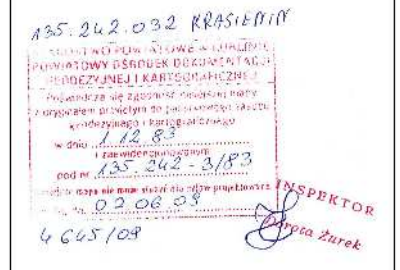 135.242.032 KRASIENIN
STAROSTWO POWIATOWE w LUBLINIE
POWIATOWY OŚRODEK DOKUMENTACJI
GEODEZYJNEJ I KARTOGRAFICZNEJ
Poświadcza się zgodność niniejszej mapy
z oryginałem przyjętym do państwowego zasobu
geodezyjnego i kartograficznego
w dniu 1.12.83
i zaewidencjonowanym
pod nr 135.242-3/83
mapa nie może służyć dla celów projektowych
02.06.09
INSPEKTOR
Dorota Żurek
4645/09